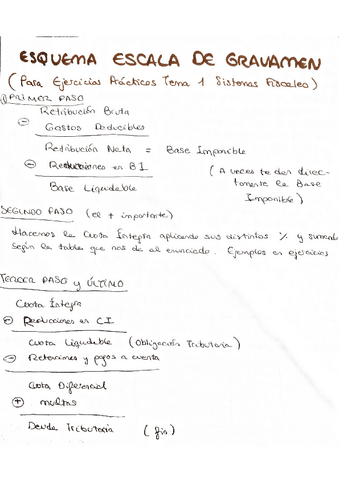 ESQUEMA ESCALA DE GRAVAMEN
(Para Ejercicios Prácticos Tema 1 Sistemas Fiscales)
① PRIMER PASO
Retribución Bruta
⊖ Gastos Deducibles
Retribución Neta = Base Imponible
⊖ Reducciones en BI (A veces te dan direc-
tamente la Base
Imponible)
Base Liquidable
SEGUNDO PASO (el + importante)
Hacemos la Cuota Íntegra aplicando sus distintos % y sumando
según la tabla que nos de el enunciado. Ejemplos en ejercicios
TERCER PASO y ÚLTIMO
Cuota Íntegra
⊖ Reducciones en CI
Cuota Liquidable (Obligación Tributaria)
⊖ Retenciones y pagos a cuenta
Cuota Diferencial
⊕ multas
Deuda Tributaria (fin)